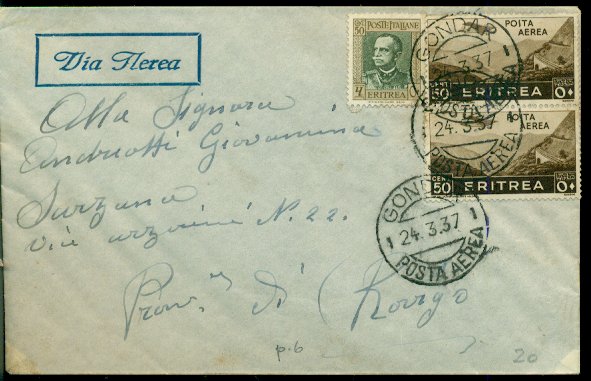 Via Aerea
POSTE ITALIANE
ERITREA
POSTA AEREA
CEN 50 ERITREA
POSTA AEREA
CEN 50 ERITREA
GONDAR
24.3.37
POSTA AEREA
GONDAR
24.3.37
POSTA AEREA
Alla Signora
Andreotti Giovannina
Sarzano
N. 22.
Prov. di Rovigo
p.6
20